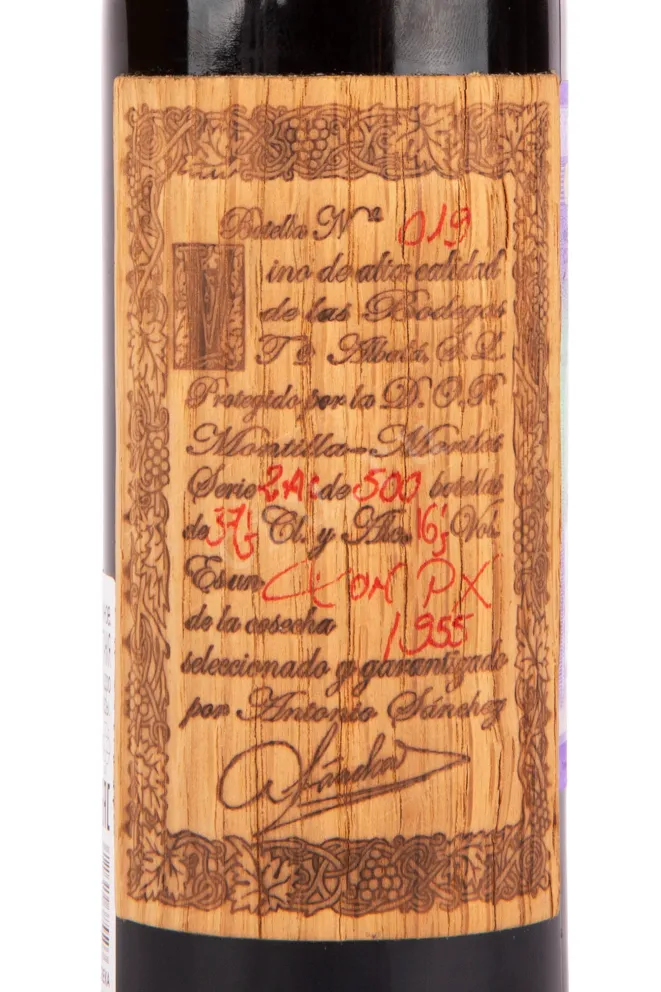 Botella Nº 019
Vino de alta calidad
de las Bodegas
Tº Albalá, S. L.
Protegido por la D. O. P.
Montilla-Moriles
Serie 2A: de 500 botellas
de 37,5 Cl. y Alc. 16,5 Vol.
Es un CXON PX
de la cosecha 1955
seleccionado y garantizado
por Antonio Sánchez
ASánchez